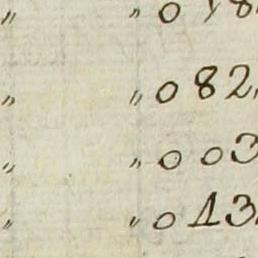 " " 0 82
" " 0 03
" " 0 13